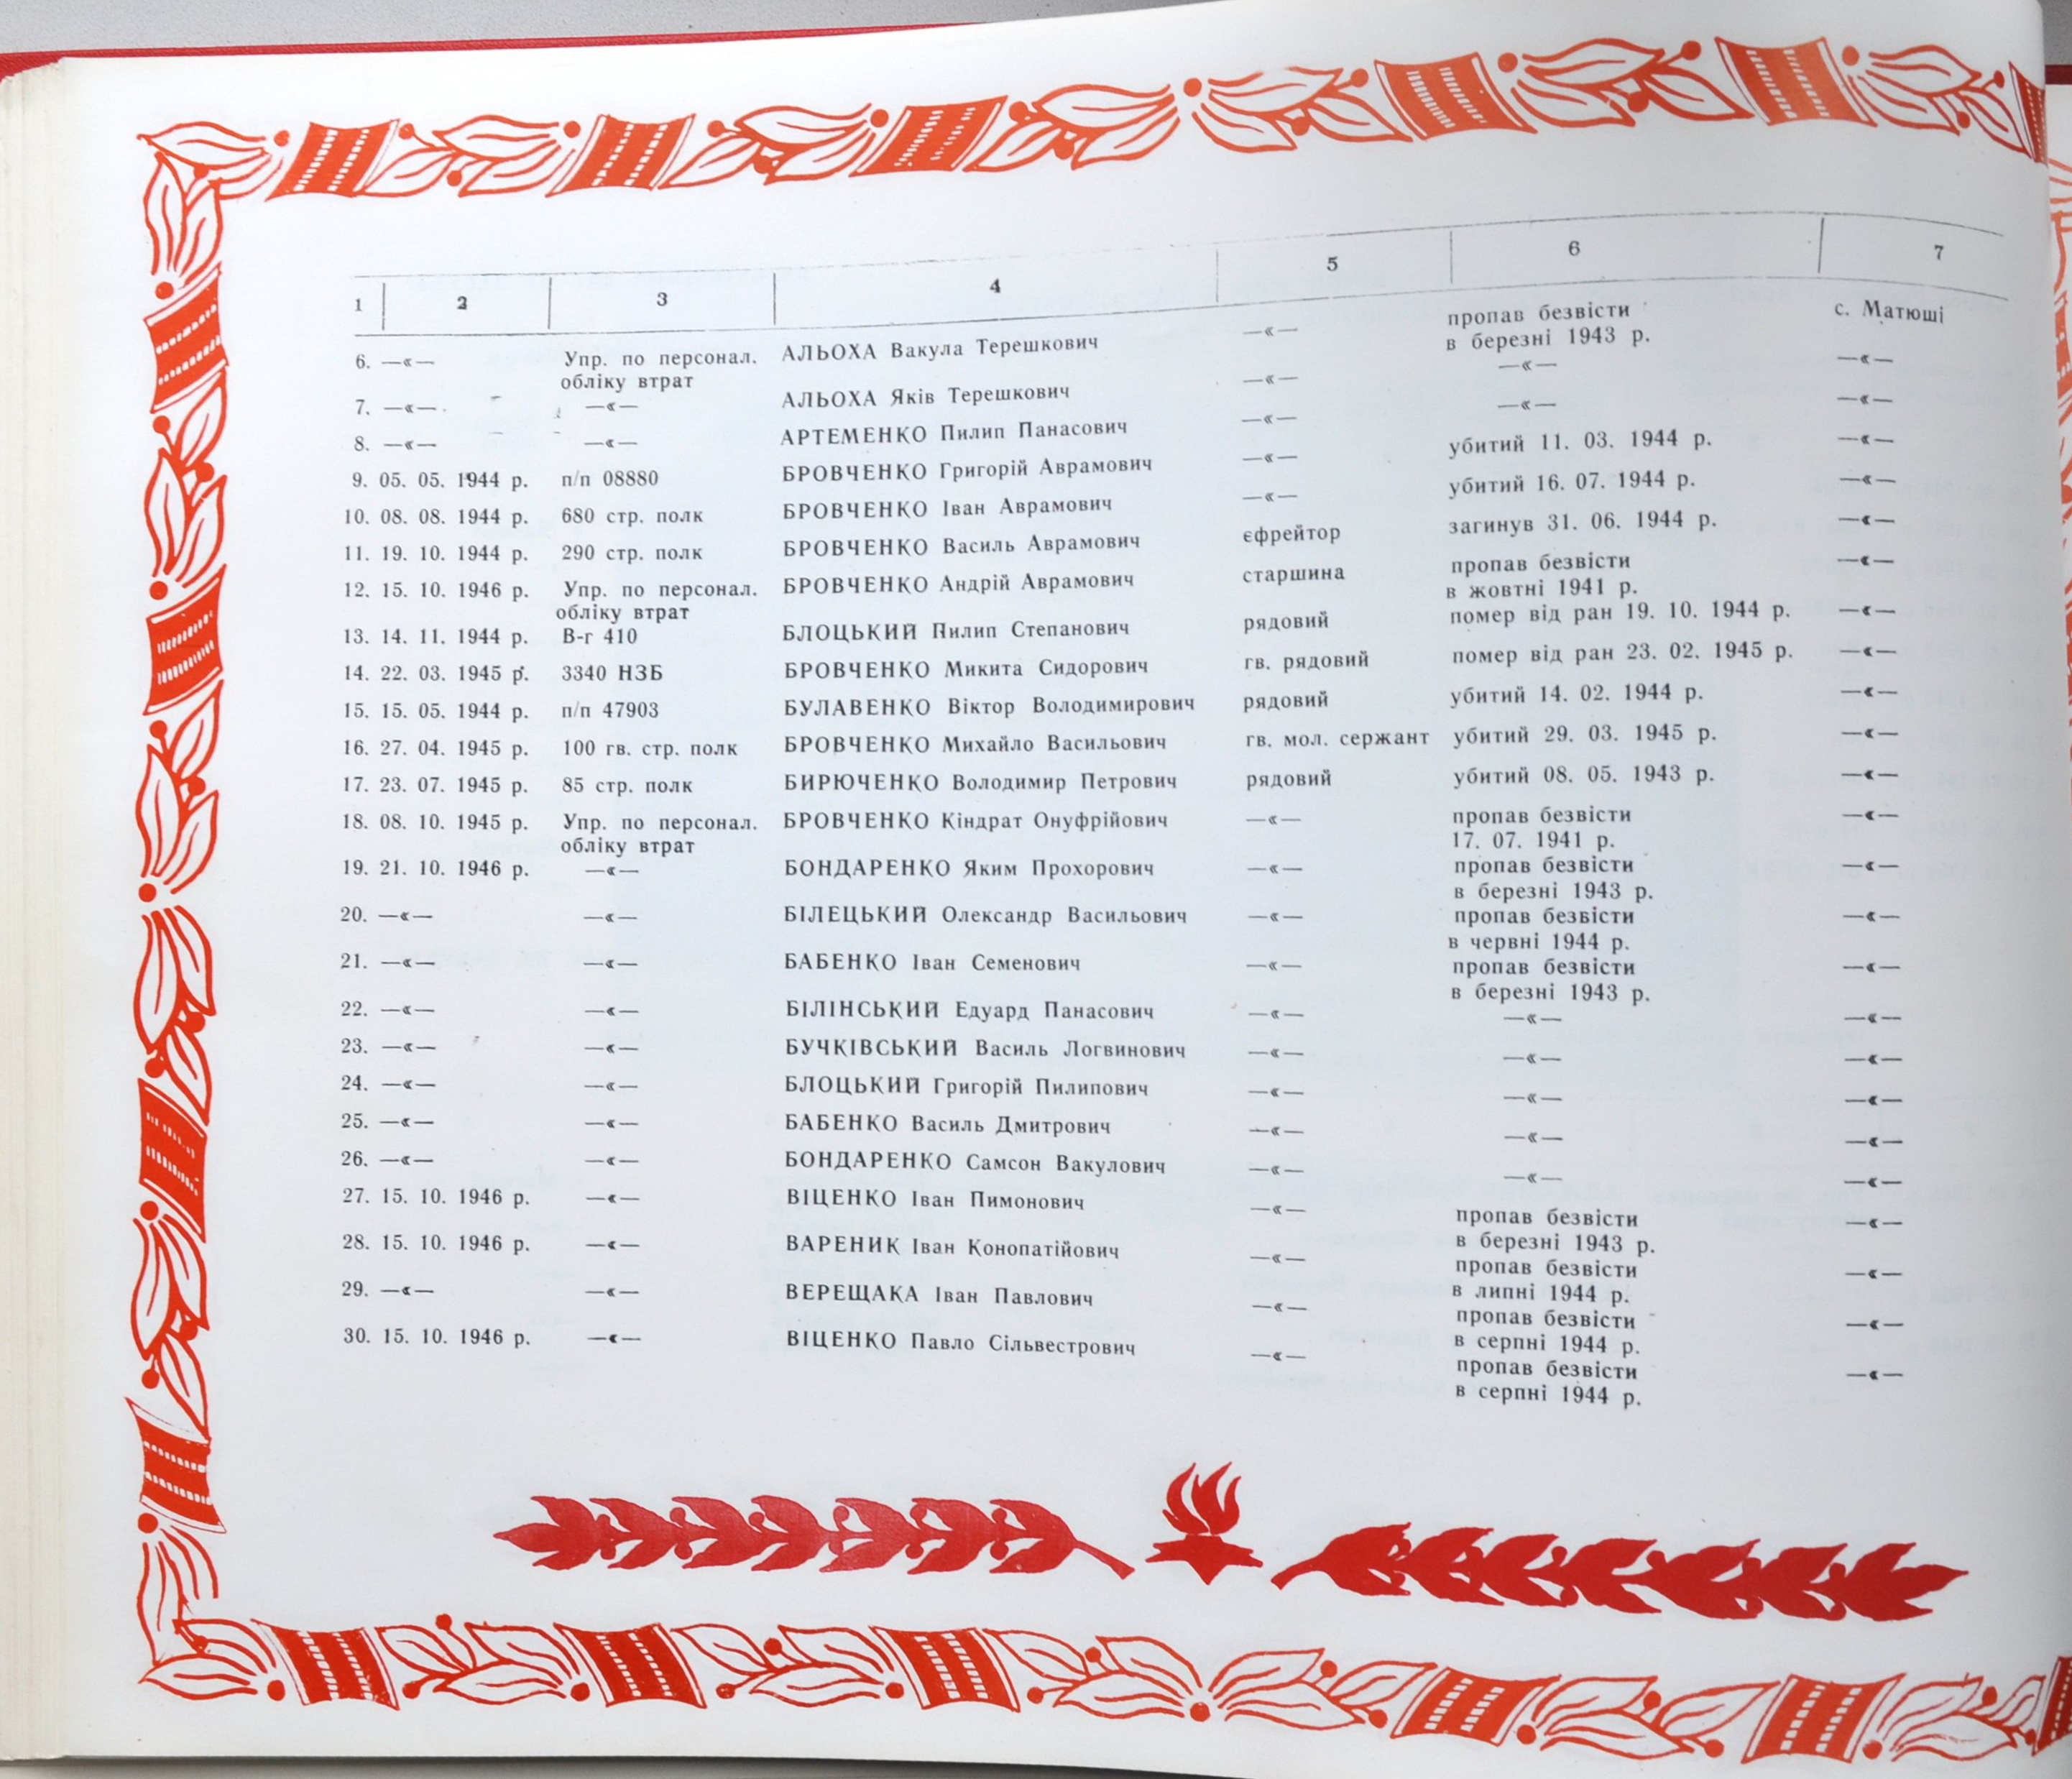 1 2 3 4 5 6 7
6. —«— Упр. по персонал. АЛЬОХА Вакула Терешкович —«— пропав безвісти с. Матюші
обліку втрат в березні 1943 р.
7. —«— —«— АЛЬОХА Яків Терешкович —«— —«— —«—
8. —«— —«— АРТЕМЕНКО Пилип Панасович —«— —«— —«—
9. 05. 05. 1944 р. п/п 08880 БРОВЧЕНКО Григорій Аврамович —«— убитий 11. 03. 1944 р. —«—
10. 08. 08. 1944 р. 680 стр. полк БРОВЧЕНКО Іван Аврамович —«— убитий 16. 07. 1944 р. —«—
11. 19. 10. 1944 р. 290 стр. полк БРОВЧЕНКО Василь Аврамович єфрейтор загинув 31. 06. 1944 р. —«—
12. 15. 10. 1946 р. Упр. по персонал. БРОВЧЕНКО Андрій Аврамович старшина пропав безвісти —«—
обліку втрат в жовтні 1941 р.
13. 14. 11. 1944 р. В-г 410 БЛОЦЬКИЙ Пилип Степанович рядовий помер від ран 19. 10. 1944 р. —«—
14. 22. 03. 1945 р. 3340 НЗБ БРОВЧЕНКО Микита Сидорович гв. рядовий помер від ран 23. 02. 1945 р. —«—
15. 15. 05. 1944 р. п/п 47903 БУЛАВЕНКО Віктор Володимирович рядовий убитий 14. 02. 1944 р. —«—
16. 27. 04. 1945 р. 100 гв. стр. полк БРОВЧЕНКО Михайло Васильович гв. мол. сержант убитий 29. 03. 1945 р. —«—
17. 23. 07. 1945 р. 85 стр. полк БИРЮЧЕНКО Володимир Петрович рядовий убитий 08. 05. 1943 р. —«—
18. 08. 10. 1945 р. Упр. по персонал. БРОВЧЕНКО Кіндрат Онуфрійович —«— пропав безвісти —«—
обліку втрат 17. 07. 1941 р.
19. 21. 10. 1946 р. —«— БОНДАРЕНКО Яким Прохорович —«— пропав безвісти —«—
в березні 1943 р.
20. —«— —«— БІЛЕЦЬКИЙ Олександр Васильович —«— пропав безвісти —«—
в червні 1944 р.
21. —«— —«— БАБЕНКО Іван Семенович —«— пропав безвісти —«—
в березні 1943 р.
22. —«— —«— БІЛІНСЬКИЙ Едуард Панасович —«— —«— —«—
23. —«— —«— БУЧКІВСЬКИЙ Василь Логвинович —«— —«— —«—
24. —«— —«— БЛОЦЬКИЙ Григорій Пилипович —«— —«— —«—
25. —«— —«— БАБЕНКО Василь Дмитрович —«— —«— —«—
26. —«— —«— БОНДАРЕНКО Самсон Вакулович —«— —«— —«—
27. 15. 10. 1946 р. —«— ВІЦЕНКО Іван Пимонович —«— пропав безвісти —«—
в березні 1943 р.
28. 15. 10. 1946 р. —«— ВАРЕНИК Іван Конопатійович —«— пропав безвісти —«—
в липні 1944 р.
29. —«— —«— ВЕРЕЩАКА Іван Павлович —«— пропав безвісти —«—
в серпні 1944 р.
30. 15. 10. 1946 р. —«— ВІЦЕНКО Павло Сільвестрович —«— пропав безвісти —«—
в серпні 1944 р.